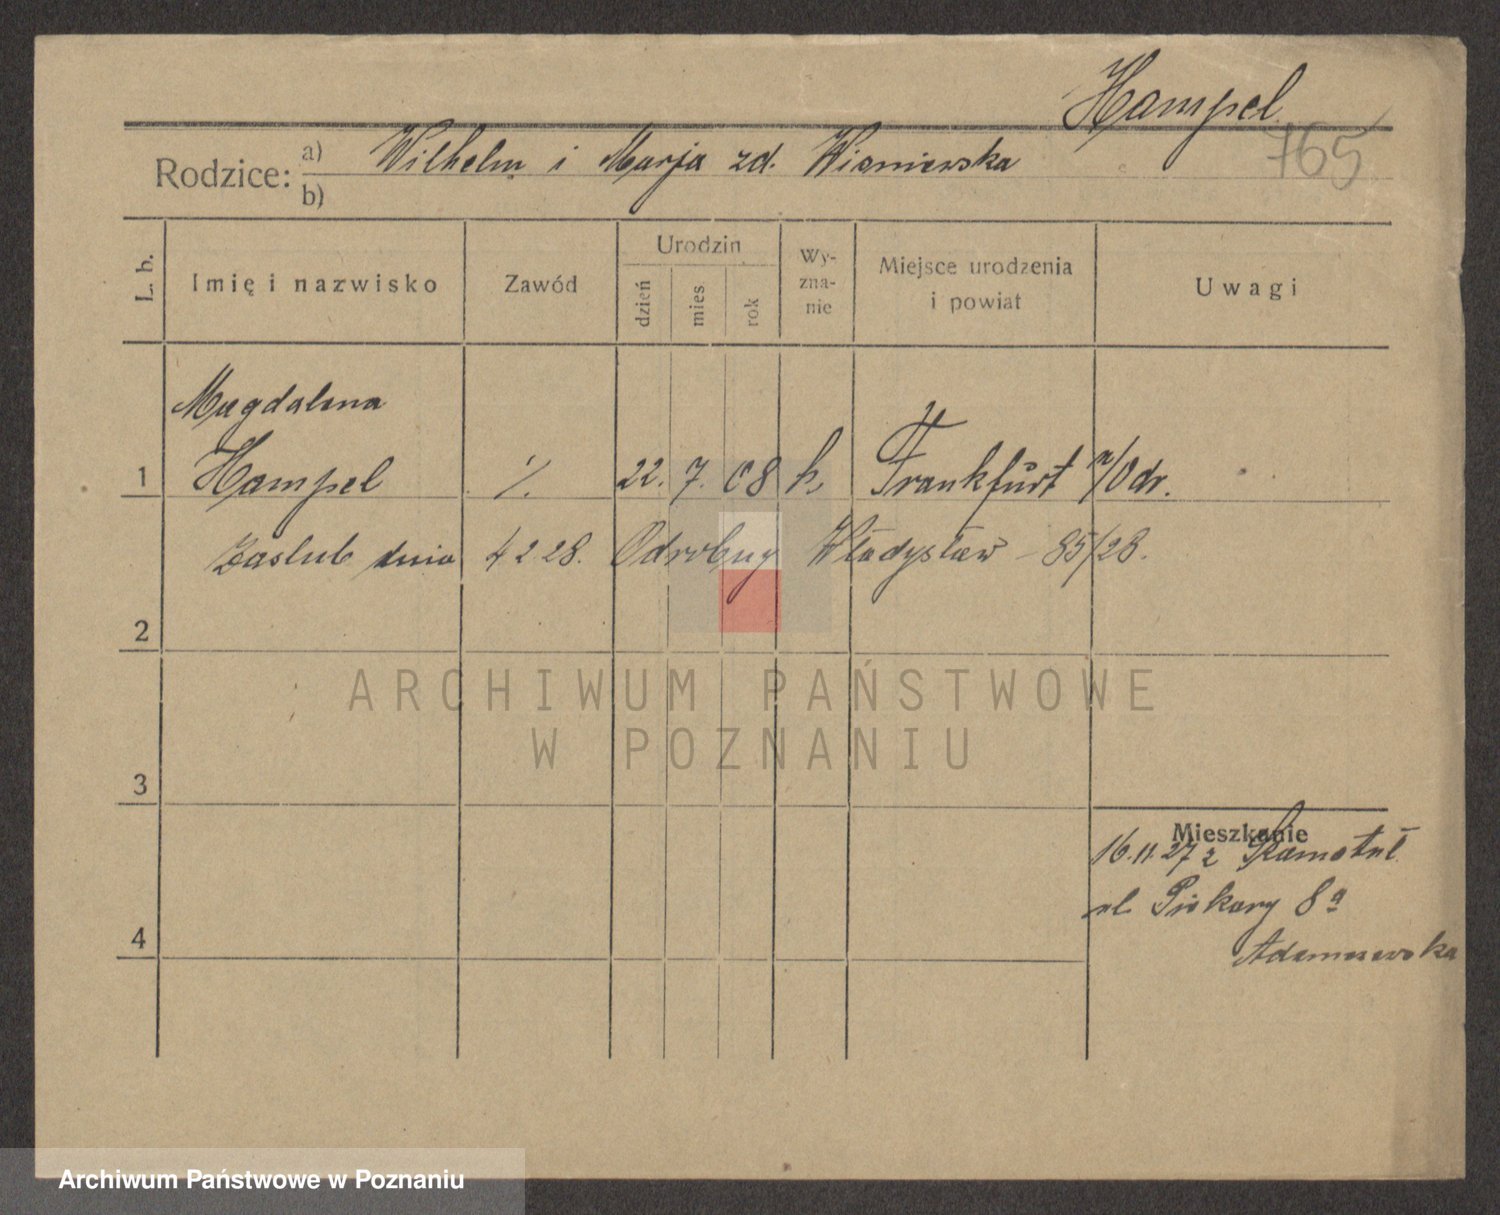 Hampel
765
Rodzice: a) Wilhelm i Marja zd. Wisniewska
b)
L. b. Imię i nazwisko Zawód Urodzin dzień mies rok Wy-zna-nie Miejsce urodzenia i powiat Uwagi
Magdalena
1 Hampel % 22. 7. 08 k, Frankfurt n/Odr.
Zaslub dnia 4 2 28. Odrobny Władysław - 85/28.
2
ARCHIWUM PAŃSTWOWE
W POZNANIU
3
Mieszkanie
16.11.27 z Szamotuł
ul Piekary 8a
4
Archiwum Państwowe w Poznaniu